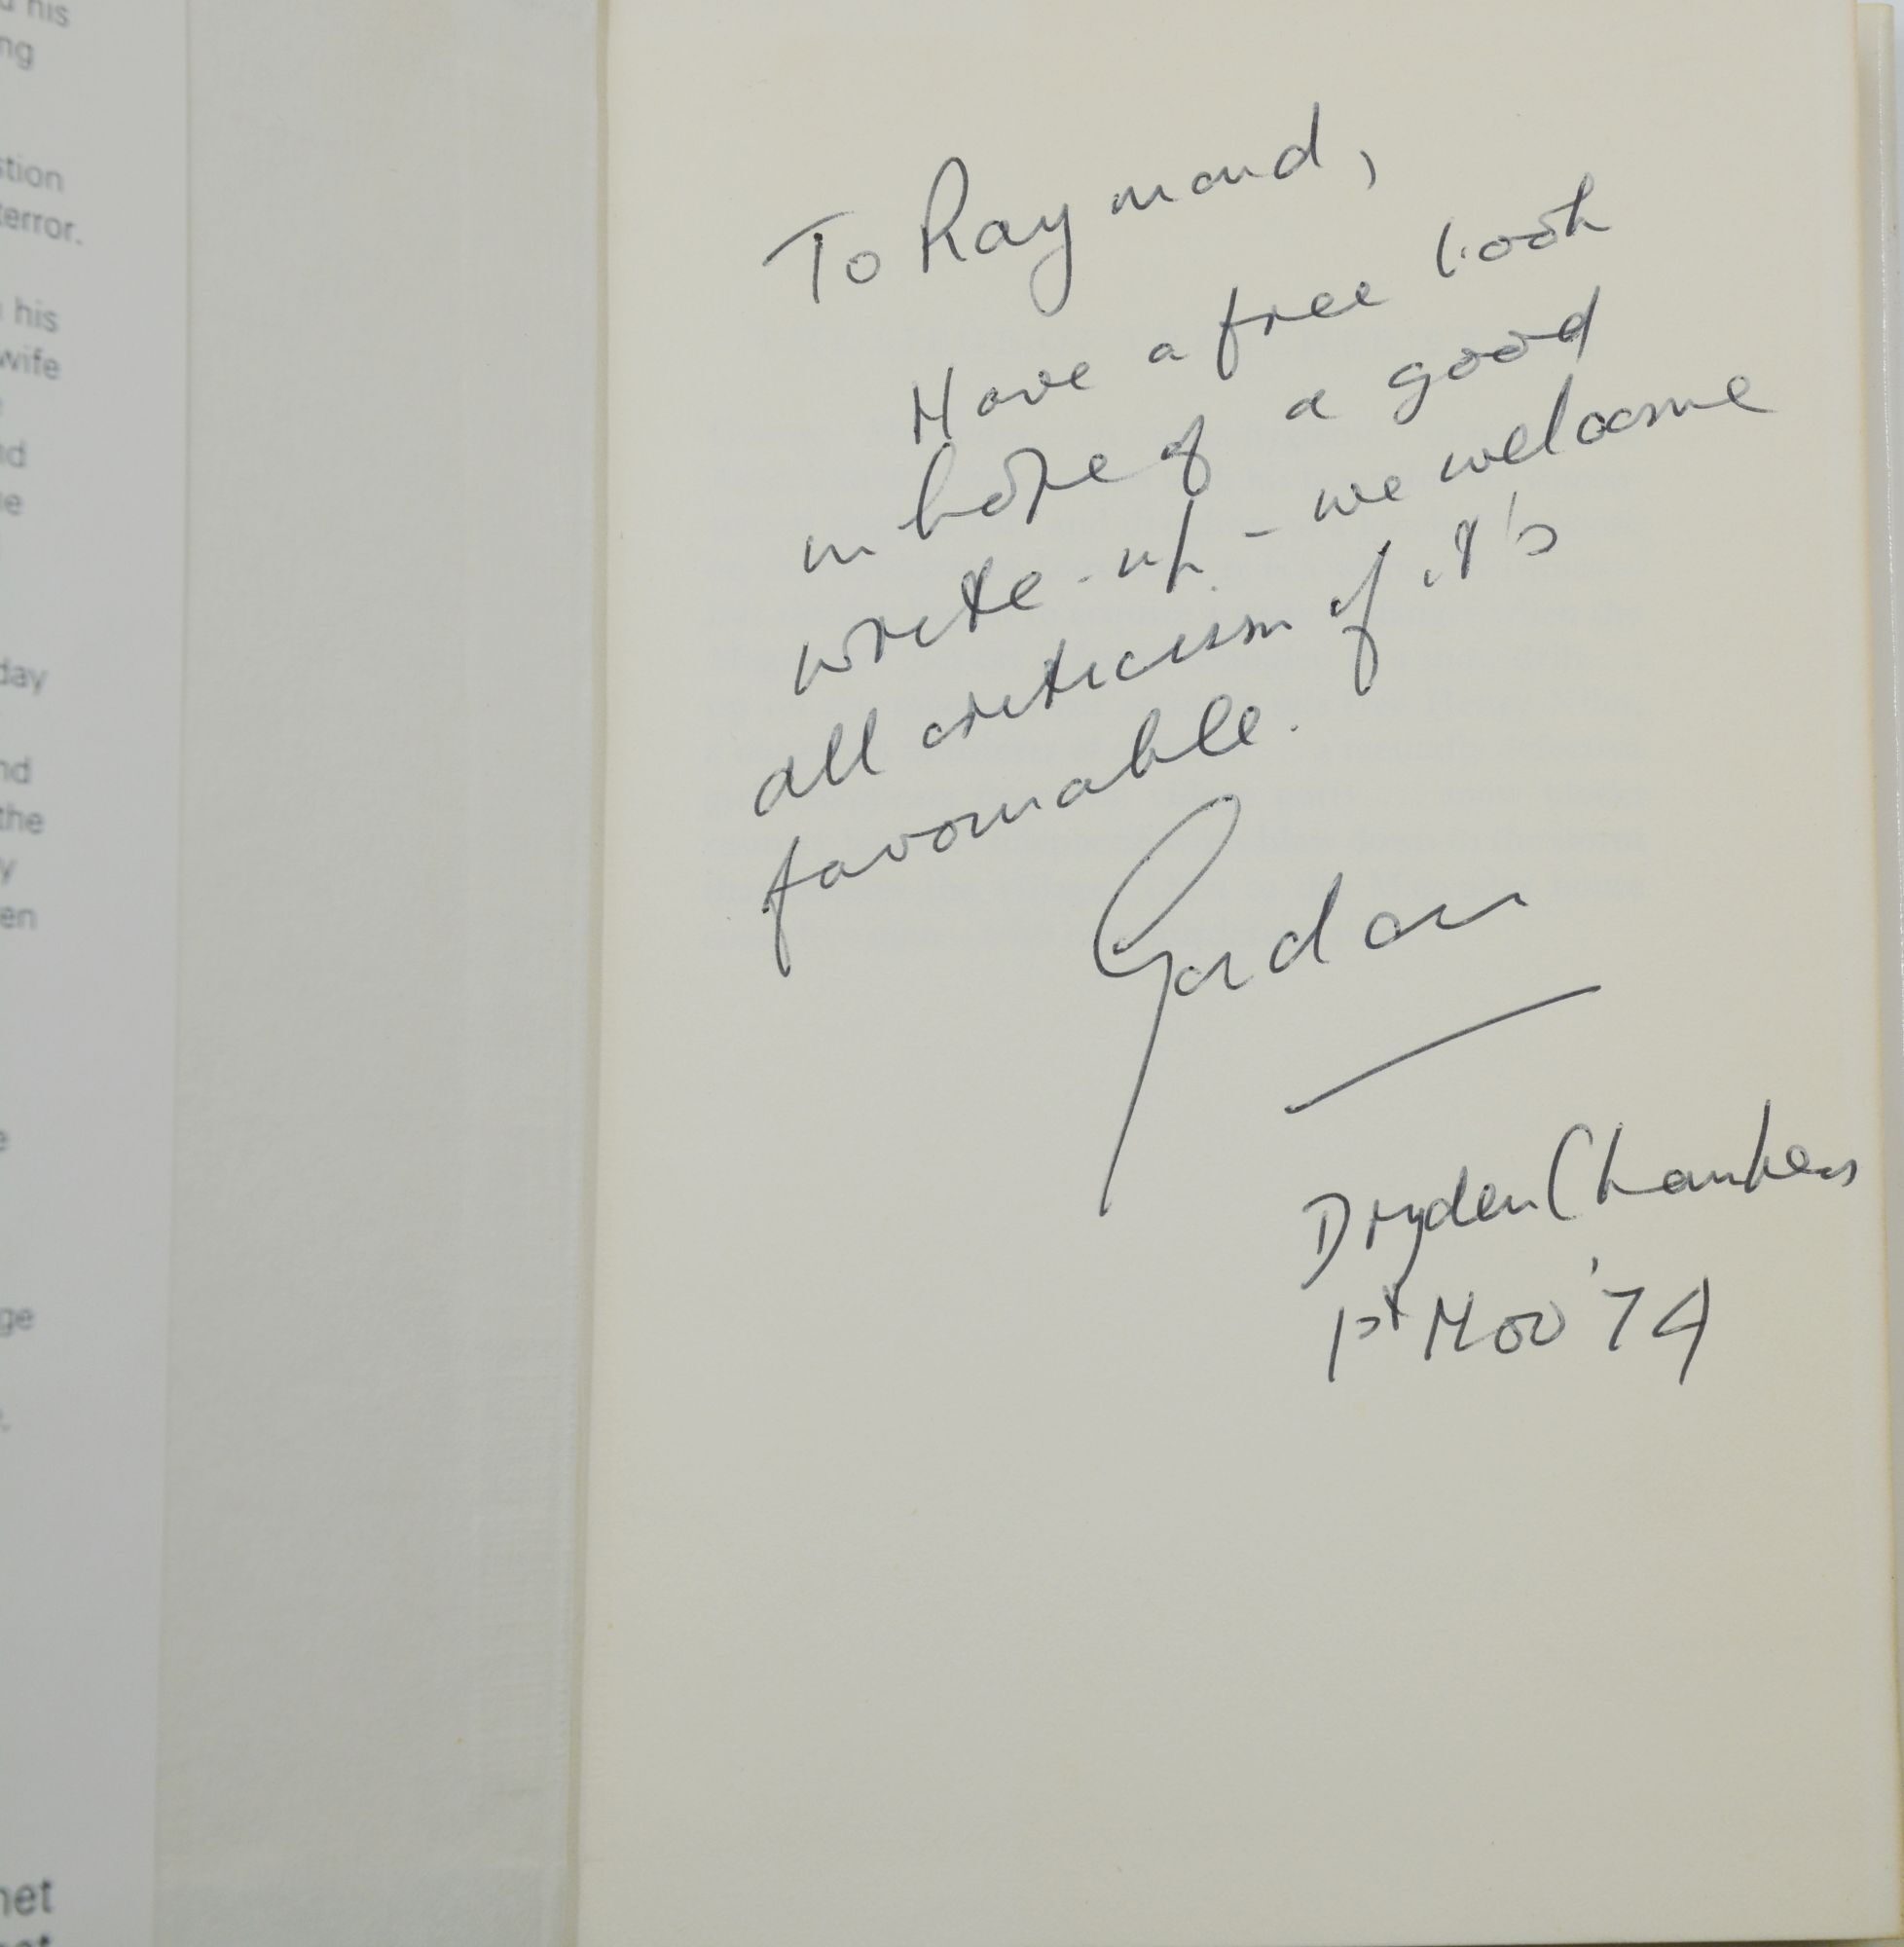 d his
ng
stion
terror.
his
wife
nd
ue
day
nd
the
y
en
e
ge
net
To Raymond,
Have a free look
in hope of a good
write-up - we welcome
all criticism if it's
favourable.
Gordon
Dryden Chambers
1st Nov '74